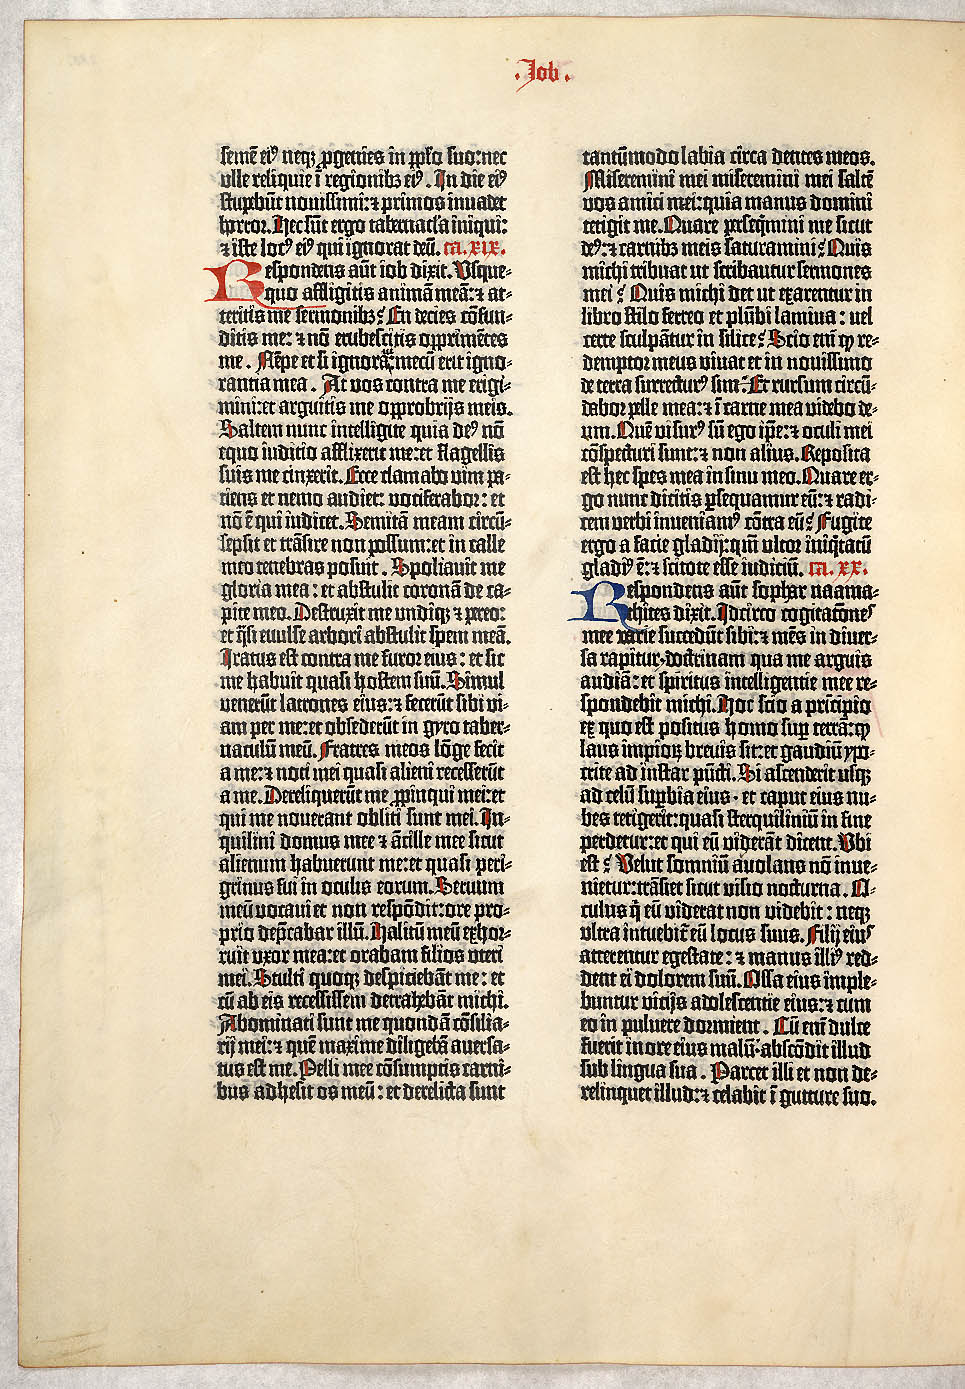 .Job.
semē ei⁹ neqꝫ ꝓgenies in pp̄lo suo:nec
ulle reliquie ī regionibꝫ ei⁹. In die ei⁹
stupebūt nouissimi:⁊ primos inuadet
horror. Hec sūt ergo tabernac̄la iniqui:
⁊ iste loc⁹ ei⁹ qui ignorat deū. ca. XIX.
Respondens aūt iob dixit. Usque-
quo affligitis animā meā:⁊ at-
teritis me sermonibꝫ? En decies cōfun-
ditis me: ⁊ nō erubescitis opprimētes
me. Nēpe et si ignoraui:mecū erit igno-
rantia mea. At vos contra me erigi-
mini:et arguitis me opprobrijs meis.
Saltem nunc intelligite quia de⁹ nō
equo iuditio afflixerit me:et flagellis
suis me cinxerit. Ecce clamabo vim pa-
tiens et nemo audiet: vociferabor: et
nō ē qui iudicet. Semitā meam circū-
sepsit et trāsire non possum:et in calle
meo tenebras posuit. Spoliauit me
gloria mea: et abstulit coronā de ca-
pite meo. Destruxit me undiqꝫ ⁊ pereo:
et q̄si evulse arbori abstulit spem meā.
Iratus est contra me furor eius: et sic
me habuit quasi hostem suū. Simul
venerūt latrones eius:⁊ fecerūt sibi vi-
am per me:et obsederūt in gyro taber-
naculū meū. Fratres meos lōge fecit
a me:⁊ noti mei quasi alieni recesserūt
a me. Dereliquerūt me ꝓpinqui mei:et
qui me noverant obliti sunt mei. In-
quilini domus mee ⁊ ācille mee sicut
alienum habuerunt me:et quasi peri-
grinus fui in oculis eorum. Servum
meū vocaui et non respōdit:ore pro-
prio dep̄cabar illū. Halitū meū exhor-
ruit uxor mea:et orabam filios uteri
mei. Stulti quoqꝫ despiciebāt me: et
cū ab eis recessissem detrahebāt michi.
Abominati sunt me quondā cōsilia-
rij mei:⁊ quē maxime diligebā aversa-
tus est me. Pelli mee cōsumptis carni-
bus adhesit os meū: et derelicta sunt
tantūmodo labia circa dentes meos.
Miseremini mei miseremini mei saltē
vos amici mei:quia manus domini
tetigit me. Quare ꝑseq̄mini me sicut
de⁹:⁊ carnibꝫ meis saturamini? Quis
michi tribuat ut scribantur sermones
mei? Quis michi det ut exarentur in
libro stilo ferreo et plūbi lamina: vel
certe sculpātur in silice? Scio enī ꝙ re-
demptor meus viuat et in novissimo
de terra surrectur⁹ sim: Et rursum circū-
dabor pelle mea:⁊ ī carne mea videbo de-
um. Quē visur⁹ sū ego ip̄e:⁊ oculi mei
cōspecturi sunt:⁊ non alius. Reposita
est hec spes mea in sinu meo. Quare er-
go nunc dicitis ꝑsequamur eū:⁊ radi-
cem verbi inveniam⁹ cōtra eū? Fugite
ergo a facie gladij:qm̄ ultor iniq̄tatū
gladi⁹ ē:⁊ scitote esse iudiciū. ca. XX.
Respondens aūt sophar naama-
thites dixit. Idcirco cogitatōnes
mee varie succedūt sibi:⁊ mēs in diver-
sa rapitur. doctrinam qua me arguis
audiā: et spiritus intelligentie mee re-
spondebit michi. Hoc scio a principio
ex quo est positus homo suꝑ terrā:ꝙ
laus impioꝝ brevis sit:et gaudiū ypo-
crite ad instar pūcti. Si ascenderit usqꝫ
ad celū suꝑbia eius. et caput eius nu-
bes tetigerit:quasi sterquiliniū in fine
perdetur:et qui eū viderāt dicent. Ubi
est? Velut somniū avolans nō inve-
nietur:trāsiet sicut visio nocturna. O-
culus q̄ eū viderat non videbit: neqꝫ
ultra intuebit̄ eū locus suus. Filij eius
atterentur egestate: ⁊ manus illi⁹ red-
dent ei dolorem suū. Ossa eius imple-
buntur vicijs adolescentie eius:⁊ cum
eo in pulvere dormient. Cū enī dulce
fuerit in ore eius malū:abscōdit illud
sub lingua sua. Parcet illi et non de-
relinquet illud:⁊ celabit ī gutture suo.